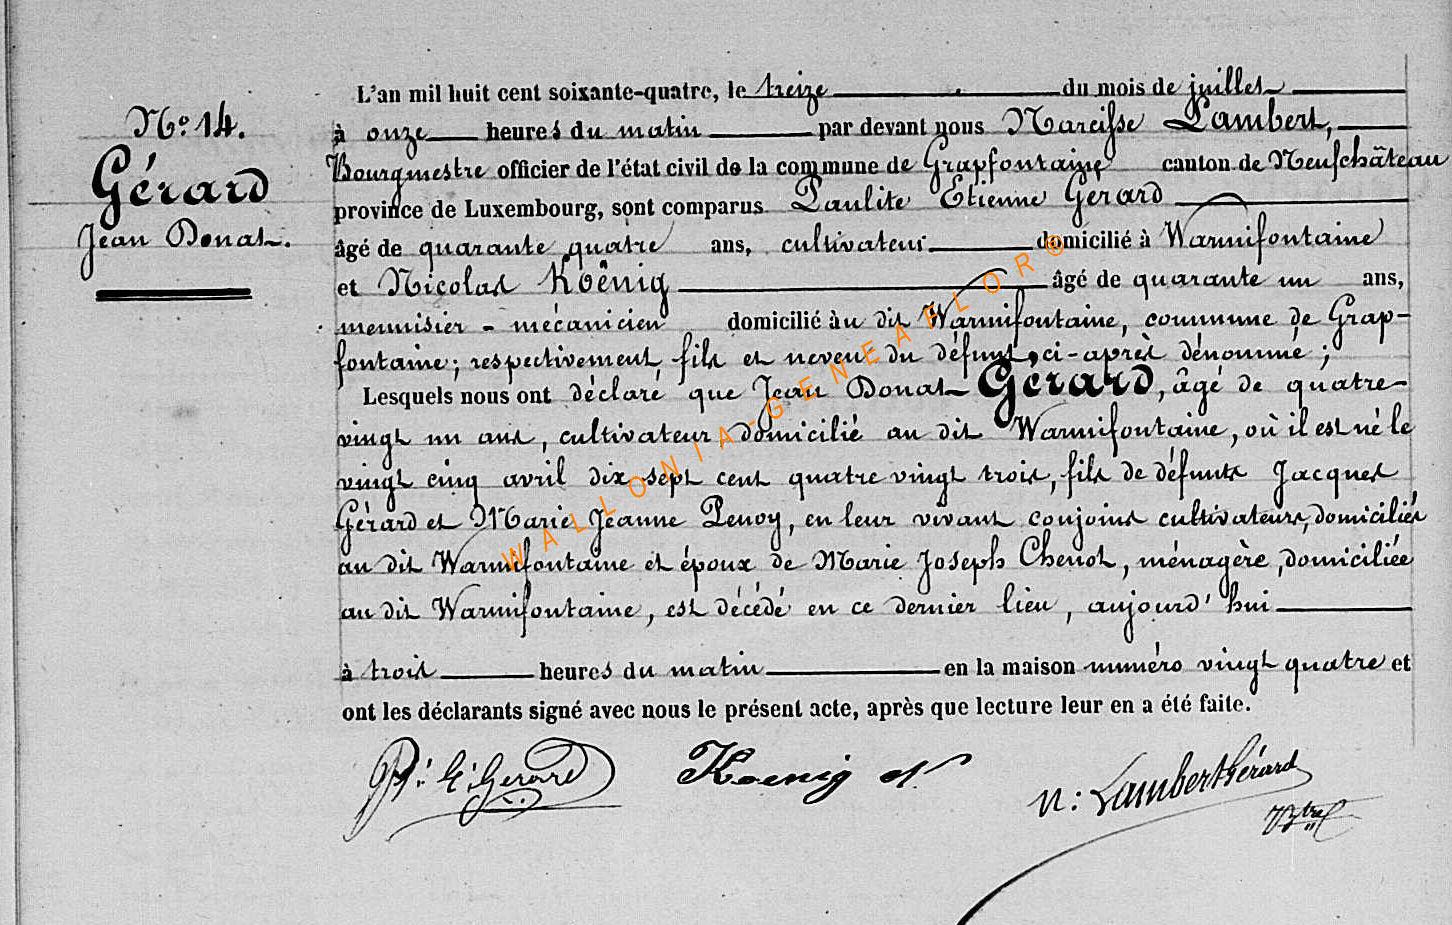 N.o 14.
Gérard
Jean Donat.
L'an mil huit cent soixante-quatre, le treize du mois de juillet
à onze heures du matin par devant nous Narcisse Lambert,
Bourgmestre officier de l'état civil de la commune de Grapfontaine canton de Neufchâteau
province de Luxembourg, sont comparus Paulite Etienne Gerard
âgé de quarante quatre ans, cultivateur domicilié à Warmifontaine
et Nicolas Koênig âgé de quarante un ans,
menuisier - mécanicien domicilié àu dit Warmifontaine, commune de Grap-
fontaine; respectivement fils et neveu du défunt, ci-après dénommé;
Lesquels nous ont déclaré que Jean Donat Gérard, âgé de quatre-
vingt un ans, cultivateur domicilié au dit Warmifontaine, où il est né le
vingt cinq avril dix sept cent quatre vingt trois, fils de défunts Jacques
Gérard et Marie Jeanne Penoy, en leur vivant conjoins cultivateurs, domiciliés
au dit Warmifontaine et époux de Marie Joseph Chenot, ménagère, domiciliée
au dit Warmifontaine, est décédé en ce dernier lieu, aujourd'hui
à trois heures du matin en la maison numéro vingt quatre et
ont les déclarants signé avec nous le présent acte, après que lecture leur en a été faite.
P: E: Gerard Koenig N. N: Lambert Gérard
WALLONIA-GENEAFLOR®